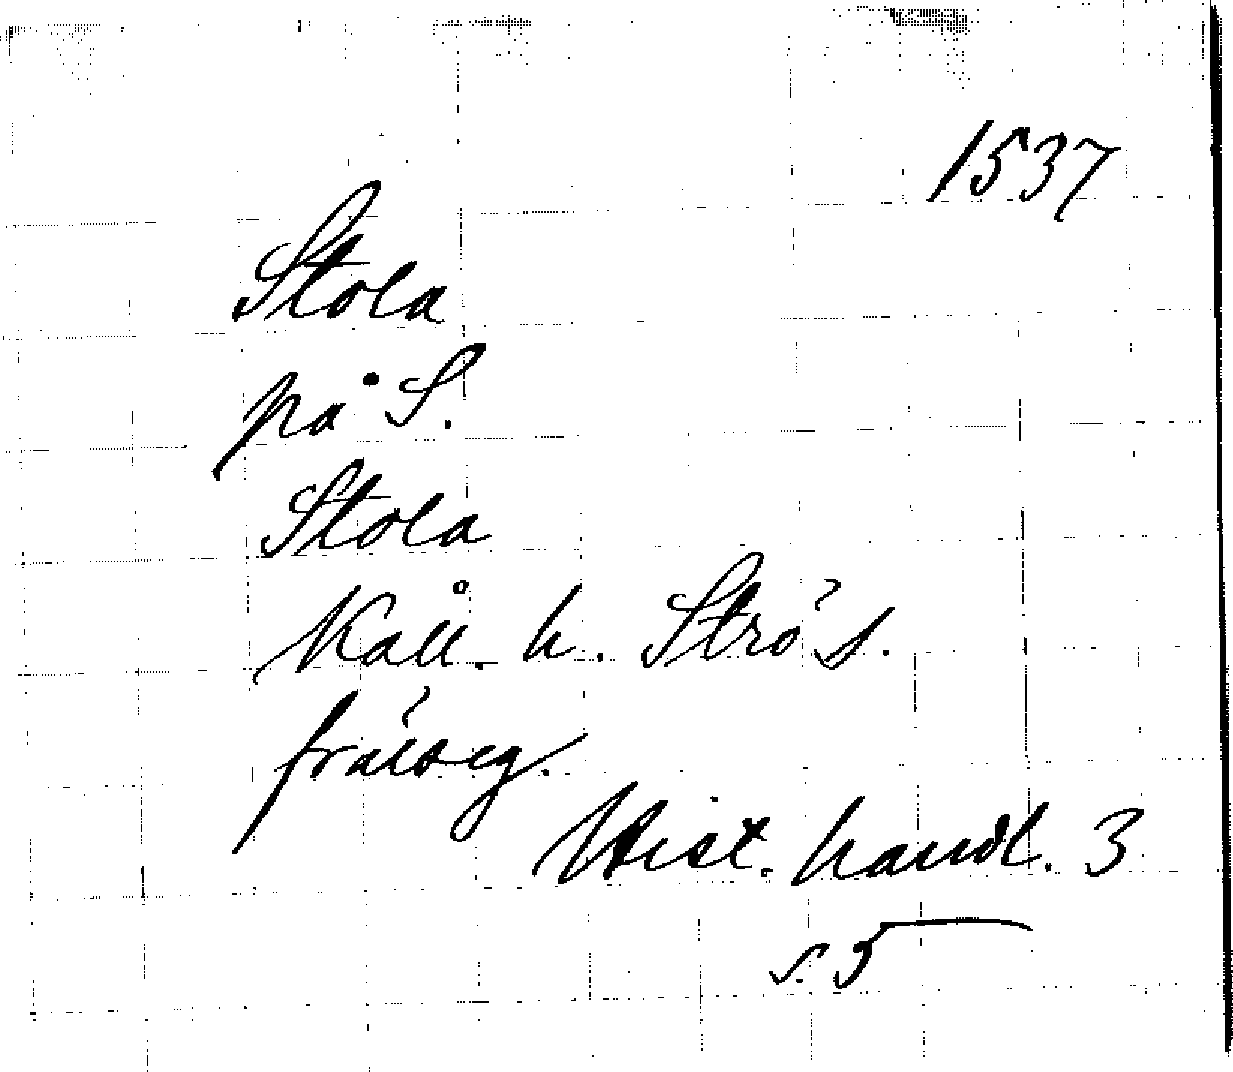 1537
Stola
på S.
Stola
Kåll. h. Strö s.
frälseg.
Hist. handl. 3
s. 5